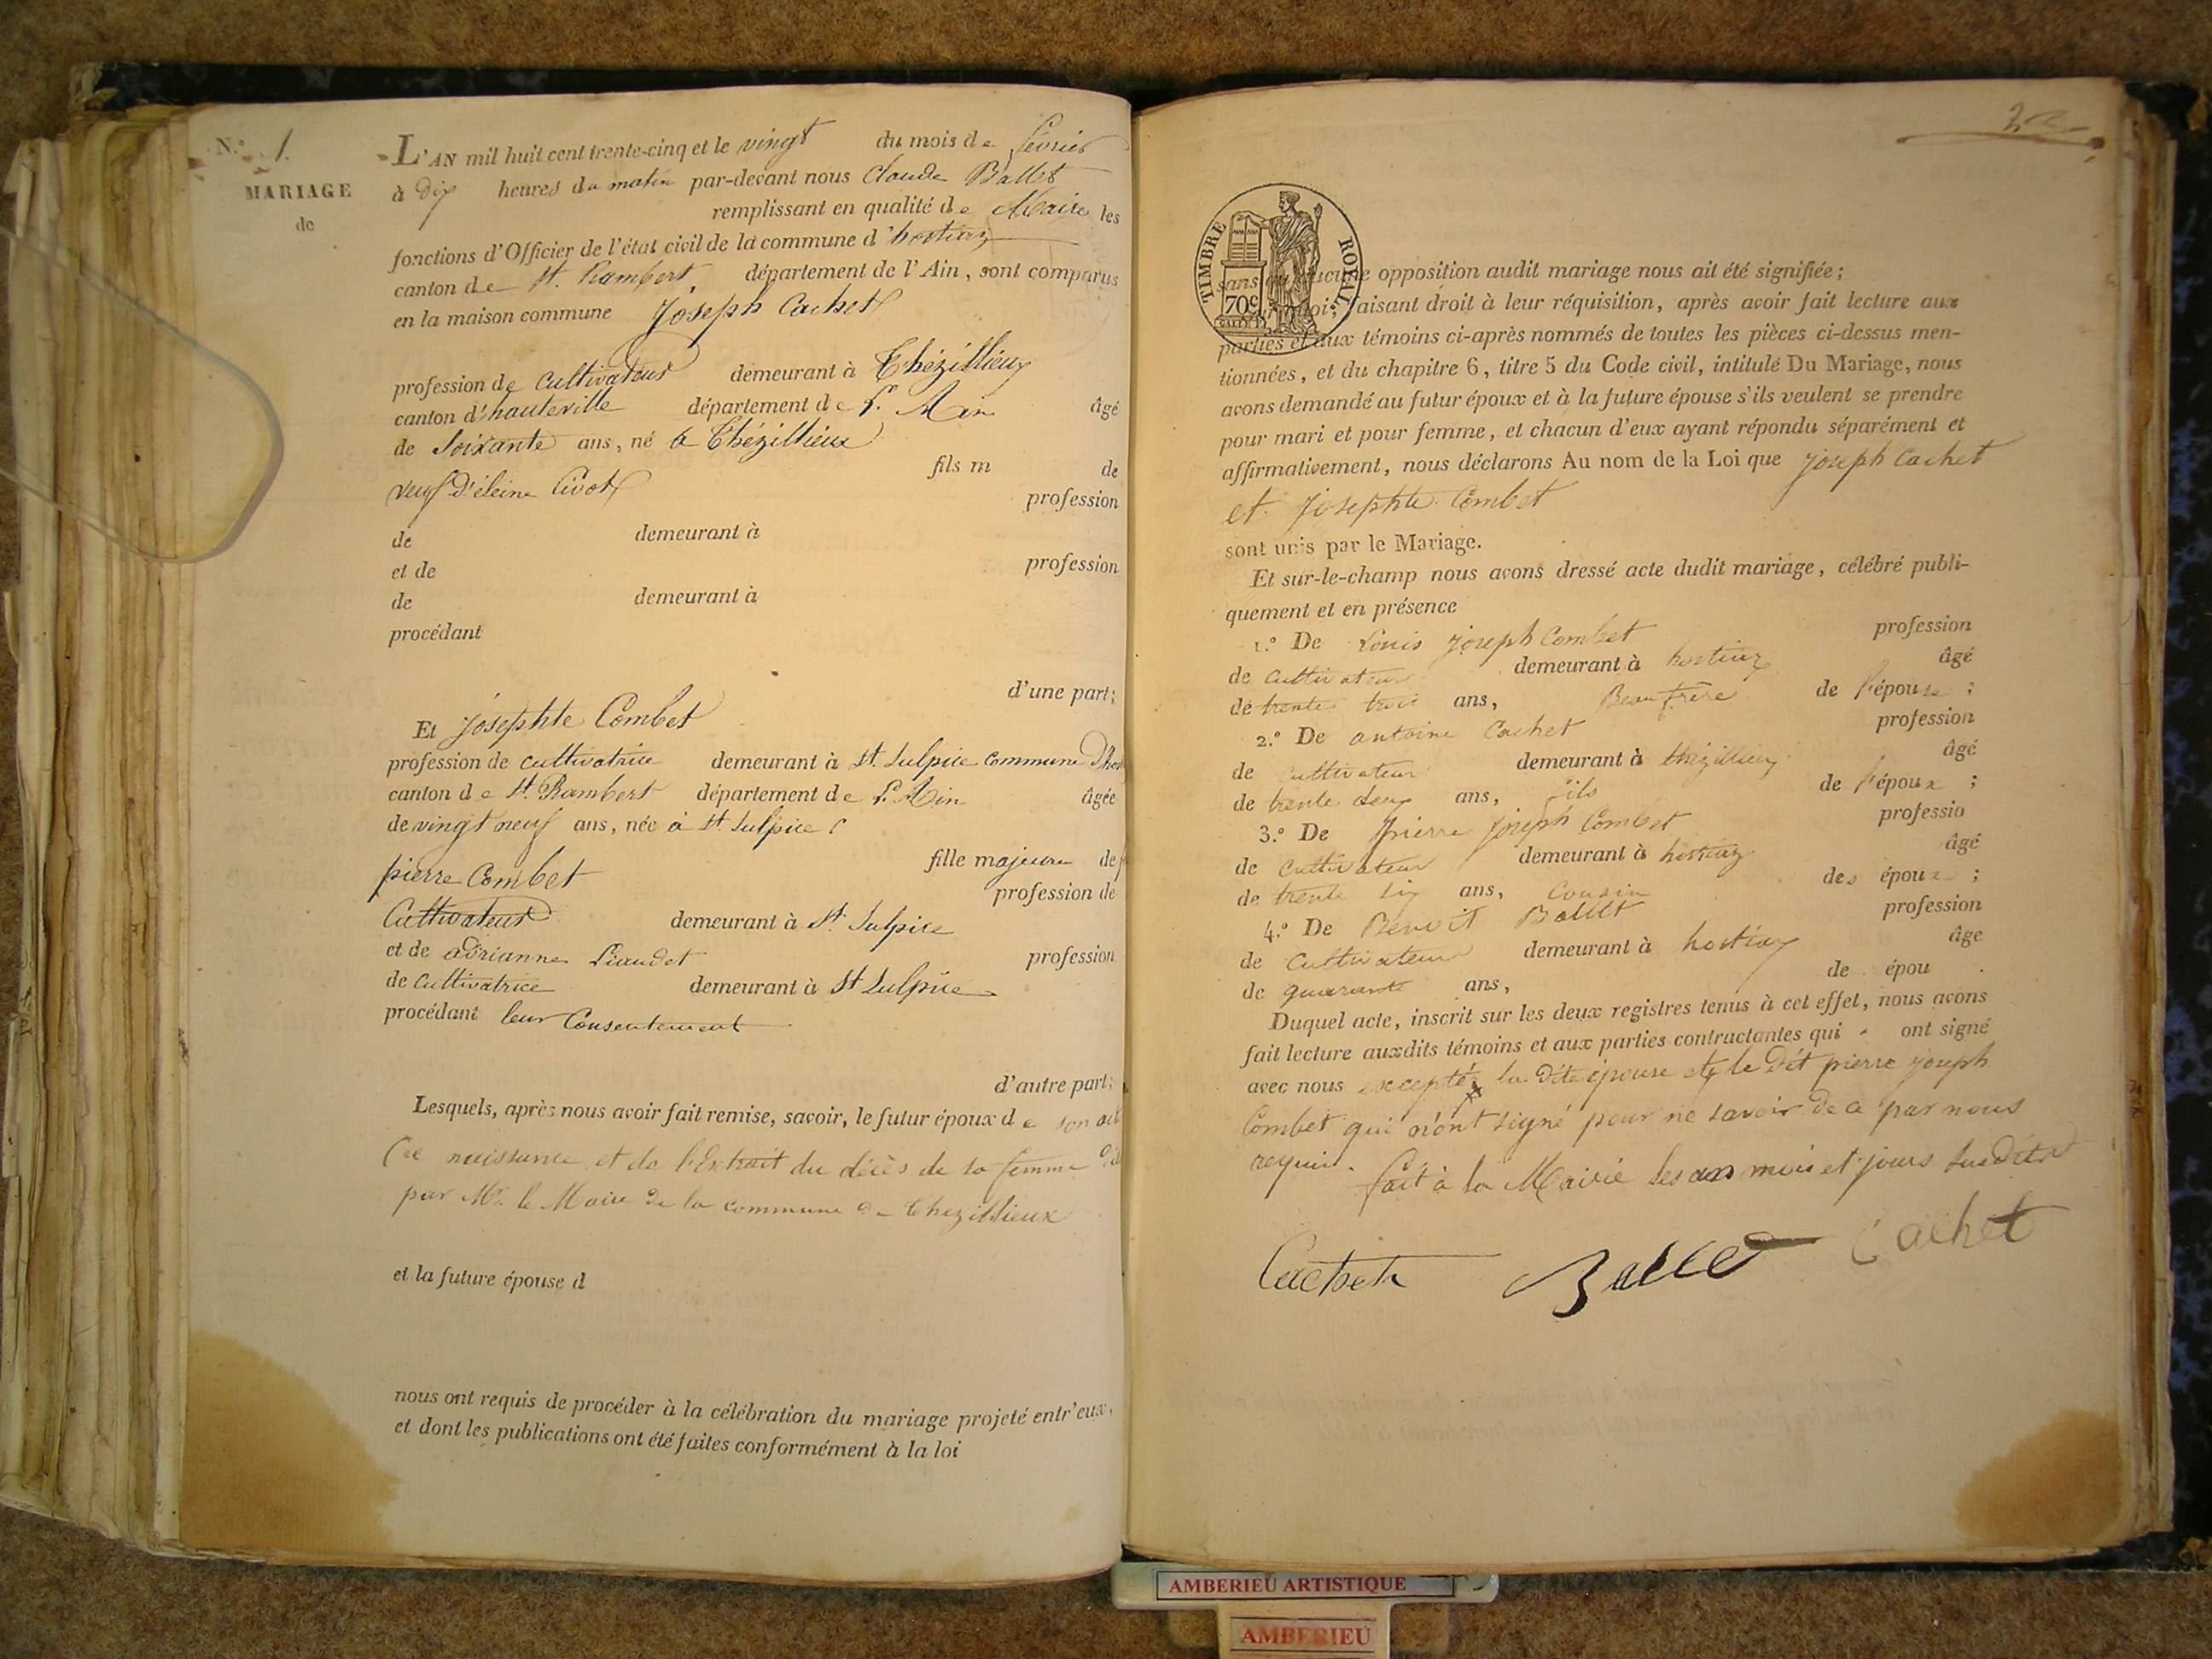 N.º 1.
MARIAGE
de
L'AN mil huit cent trente-cinq et le vingt du mois de février
à dix heures du matin par-devant nous Claude Ballet
remplissant en qualité de Maire les
fonctions d'Officier de l'état civil de la commune d'hostiaz
canton de St. Rambert, département de l'Ain, sont comparus
en la maison commune Joseph Cachet
profession de cultivateur demeurant à Thézillieux
canton d'hauteville département de l'Ain âgé
de soixante ans, né à Thézillieux
fils m de
veuf d'éleine Livot
profession
de demeurant à
et de profession
de demeurant à
procédant
d'une part;
Et Josephte Combet
profession de cultivatrice demeurant à St. Sulpice commune
canton de St. Rambert département de l'Ain âgée
de vingt neuf ans, née à St Sulpice
fille majeure de
pierre Combet
profession de
Cultivateur demeurant à St. Sulpice
et de adrianne Liaudet profession
de cultivatrice demeurant à St Sulpice
procédant leur Consentement
d'autre part;
Lesquels, après nous avoir fait remise, savoir, le futur époux de son
de naissance et de l'Extrait du décès de sa femme
par Mr. le Maire de la commune de thezillieux
et la future épouse d
nous ont requis de procéder à la célébration du mariage projeté entr'eux,
et dont les publications ont été faites conformément à la loi
TIMBRE ROYAL
70c
sans aucune opposition audit mariage nous ait été signifiée;
faisant droit à leur réquisition, après avoir fait lecture aux
parties et aux témoins ci-après nommés de toutes les pièces ci-dessus men-
tionnées, et du chapitre 6, titre 5 du Code civil, intitulé Du Mariage, nous
avons demandé au futur époux et à la future épouse s'ils veulent se prendre
pour mari et pour femme, et chacun d'eux ayant répondu séparément et
affirmativement, nous déclarons Au nom de la Loi que Joseph Cachet
et Josephte Combet
sont unis par le Mariage.
Et sur-le-champ nous avons dressé acte dudit mariage, célébré publi-
quement et en présence
1.º De Louis joseph Combet profession
de cultivateur demeurant à hostiaz âgé
de trente trois ans, Beau frère de l'épouse;
2.º De antoine Cachet profession
de cultivateur demeurant à thézillieux âgé
de trente deux ans, fils de l'époux;
3.º De pierre joseph Combet professio
de cultivateur demeurant à hostiaz âgé
de trente six ans, cousin des époux;
4.º De Benoit Ballet profession
de cultivateur demeurant à hostiaz âge
de quarante ans, de épou
Duquel acte, inscrit sur les deux registres tenus à cet effet, nous avons
fait lecture auxdits témoins et aux parties contractantes qui ont signé
avec nous excepté la dite épouse et le dit pierre joseph
Combet qui n'ont signé pour ne savoir de ce par nous
requis. fait à la Mairie les an mois et jours susdits
Cachet Ballet Cachet
AMBERIEU ARTISTIQUE
AMBERIEU